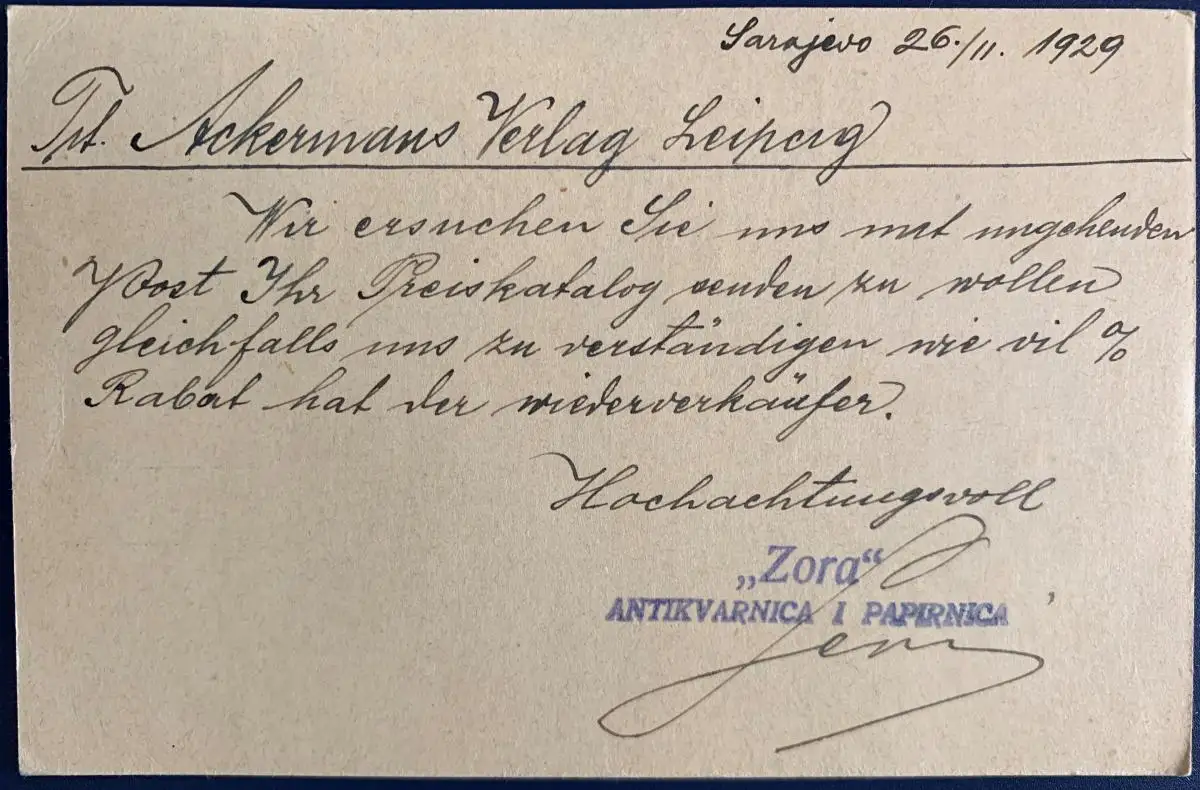 Sarajevo 26./II. 1929
Tit. Ackermans Verlag Leipzig
Wir ersuchen Sie uns mit umgehenden
Post Ihr Preiskatalog senden zu wollen
gleichfalls uns zu verständigen wie vil %
Rabat hat der wiederverkäufer.
Hochachtungsvoll
„Zora“
ANTIKVARNICA I PAPIRNICA